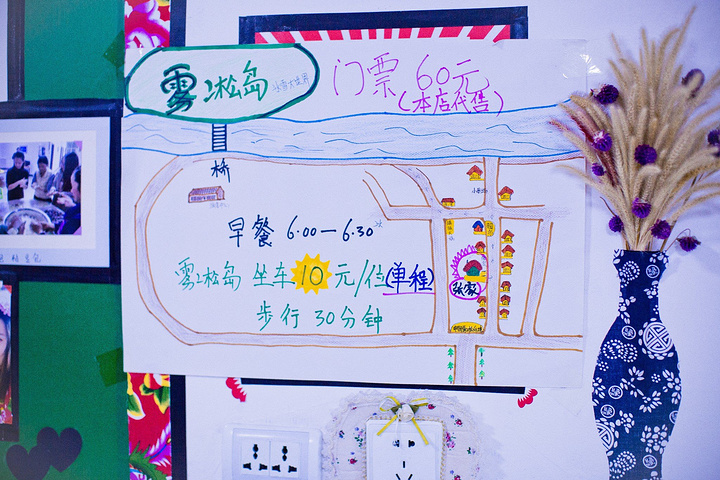 雾凇岛
门票 60元
(本店代售)
桥
早餐 6:00—6:30
雾凇岛 坐车 10 元/位(单程)
张家
步行 30分钟